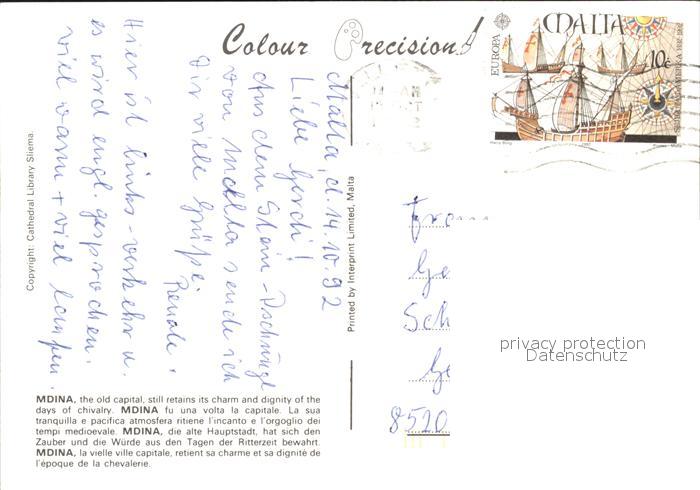 Colour Precision
EUROPA
MALTA
10c
Malta, d. 14.10.92
Liebe Gerdi!
Aus dem Stein-Dschungel
von Malta sende ich
Dir viele Grüße.
Renate.
Hier ist links-verkehr u.
es wird engl. gesprochen.
viel warm + viel laufen.
Copyright: Cathedral Library Sliema.
Printed by Interprint Limited, Malta
Frau
Ge
Sch
Ge
8520
privacy protection
Datenschutz
MDINA, the old capital, still retains its charm and dignity of the
days of chivalry. MDINA fu una volta la capitale. La sua
tranquilla e pacifica atmosfera ritiene l'incanto e l'orgoglio dei
tempi medioevale. MDINA, die alte Hauptstadt, hat sich den
Zauber und die Würde aus den Tagen der Ritterzeit bewahrt.
MDINA, la vielle ville capitale, retient sa charme et sa dignité de
l'époque de la chevalerie.